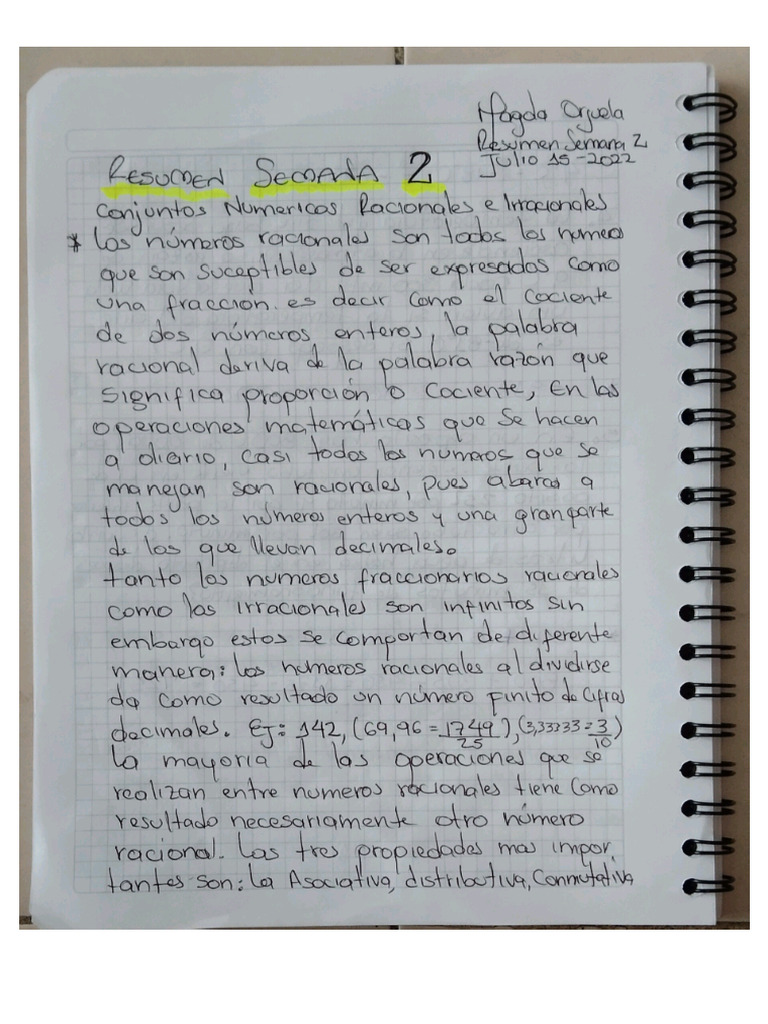 Magda Orjuela
Resumen Semana 2
Julio 15-2022
RESUMEN SEMANA 2
Conjuntos Numericos Racionales e Irracionales
* Los números racionales son todos los numeros
que son suceptibles de ser expresados como
una fraccion. es decir como el cociente
de dos números enteros, la palabra
racional deriva de la palabra razón que
significa proporción o cociente, En las
operaciones matemáticas que se hacen
a diario, casi todos los numeros que se
manejan son racionales, pues abarca a
todos los números enteros y una gran parte
de los que llevan decimales.
tanto los numeros fraccionarios racionales
como los irracionales son infinitos sin
embargo estos se comportan de diferente
manera: los numeros racionales al dividirse
da como resultado un número finito de cifras
decimales. Ej: 142, (69,96 = 1749/25), (3,33333 = 3/10)
La mayoria de las operaciones que se
realizan entre numeros racionales tiene como
resultado necesariamente otro número
racional. Las tres propiedades mas impor
tantes son: la Asociativa, distributiva, Conmutativa